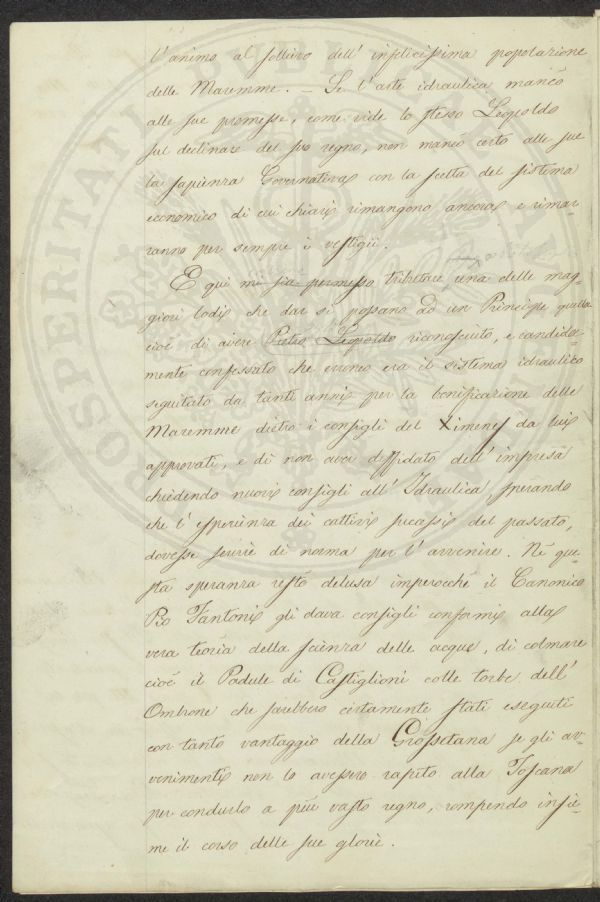 l'animo al sollievo dell'infelicissima popolazione
delle Maremme. _ Se l'arte idraulica mancò
alle sue promesse, come vide lo stesso Leopoldo
sul declinare del suo regno, non mancò certo alle sue
la sapienza Governativa con la scelta del sistema
economico di cui chiari rimangono ancora e rimar=
ranno per sempre i vestigii.
E qui mi sia permesso tributare una delle mag=
giori lodi che dar si possano ad un Principe quella
cioè di avere Pietro Leopoldo riconosciuto, e candida=
mente confessato che erroneo era il sistema idraulico
seguitato da tanti anni per la bonificazione delle
Maremme dietro i consigli del Ximenes da lui
approvati, e di non aver diffidato dell'impresa
chiedendo nuovi consigli all'Idraulica sperando
che l'esperienza dei cattivi successi del passato,
dovesse servire di norma per l'avvenire. Nè que=
sta speranza restò delusa imperocchè il Canonico
Pio Fantoni gli dava consigli conformi alla
vera teoria della scienza delle acque, di colmare
cioè il Padule di Castiglioni colle torbe dell'
Ombrone che sarebbero certamente stati eseguiti
con tanto vantaggio della Grossetana se gli av=
venimenti non lo avessero rapito alla Toscana
per condurlo a più vasto regno, rompendo insie=
me il corso delle sue glorie.
PROSPERITATI PUBLICAE